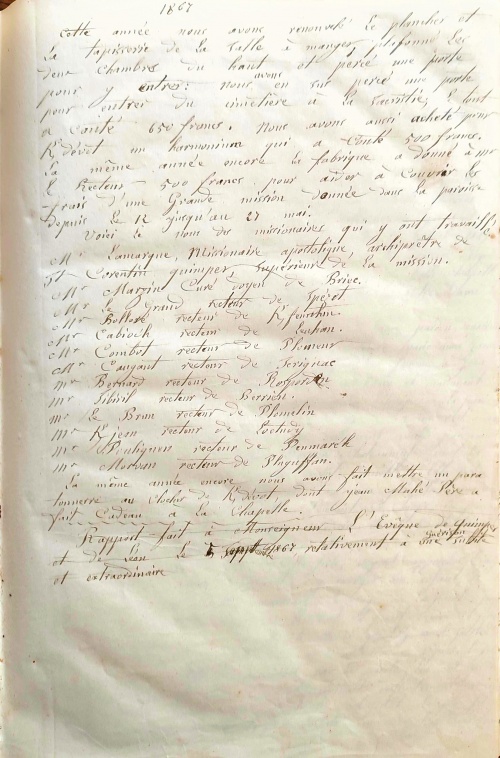 1867
Cette année nous avons renouvelé le plancher et
la tapisserie de la salle à manger, plafonné les
deux chambres du haut et percé une porte
pour y entrer: nous avons en sus percé une porte
pour entrer du cimetière à la sacristie, le tout
a couté 650 francs. Nous avons aussi acheté pour
Kdévot un harmonium qui a couté 500 francs.
La même année encore la fabrique a donné à mr
le Recteur 500 francs pour aider à couvrir les
frais d'une Grande mission donnée dans la paroisse
depuis le 12 jusqu'au 27 mai.
Voici le nom des missionaires qui y ont travaillé
Mr Lamarque, Missionaire apostolique archiprêtre de
St Corentin quimper, Supérieur de la mission.
Mr Marzin Curé doyen de Briec.
Mr le grand recteur de Spézet
Mr Bolloré recteur de Kfeunten
Mr Cabiock recteur de Leuhan.
Mr Combot recteur de Plomeur
Mr Caugant recteur de Scrignac
mr Bernard recteur de Rosporden
mr Sibiril recteur de Berrien.
mr Le Bran recteur de Plomelin
mr Kjean recteur de Loctudy
mr Pouliquen recteur de Penmarck
mr Morvan recteur de Pluguffan.
La même année encore nous avons fait mettre un para
tonnerre au Clocher de Kdévot, dont jean Mahé Père a
fait Cadeau à la Chapelle.
Rapport fait à Monseigneur L'Evêque de Quimper
et de Léon le 5 sept 1867 relativement à une guérison subite
et extraordinaire